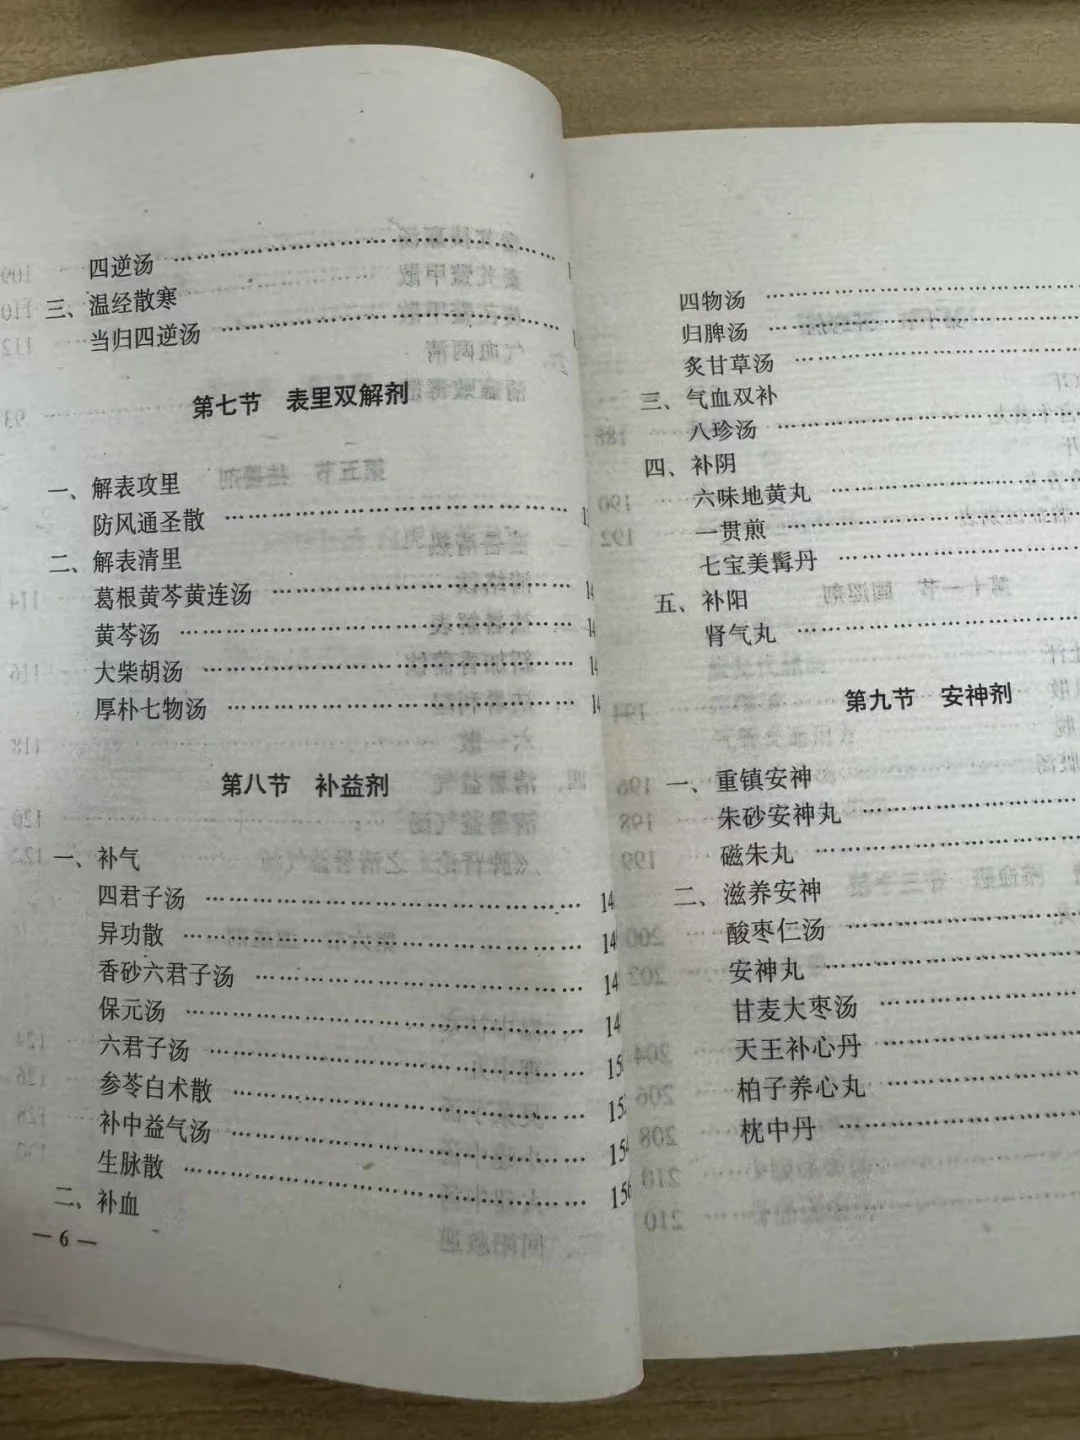 四逆汤 ……………………………… 1
三、温经散寒
当归四逆汤 ……………………………… 1
第七节 表里双解剂
一、解表攻里
防风通圣散 ……………………………… 1
二、解表清里
葛根黄芩黄连汤 ……………………………… 14
黄芩汤 ……………………………… 14
大柴胡汤 ……………………………… 14
厚朴七物汤 ……………………………… 14
第八节 补益剂
一、补气
四君子汤 ……………………………… 14
异功散 ……………………………… 14
香砂六君子汤 ……………………………… 14
保元汤 ……………………………… 14
六君子汤 ……………………………… 15
参苓白术散 ……………………………… 15
补中益气汤 ……………………………… 154
生脉散 ……………………………… 156
二、补血
— 6 —
四物汤 ………………………………
归脾汤 ………………………………
炙甘草汤 ………………………………
三、气血双补
八珍汤 ………………………………
四、补阴
六味地黄丸 ………………………………
一贯煎 ………………………………
七宝美髯丹 ………………………………
五、补阳
肾气丸 ………………………………
第九节 安神剂
一、重镇安神
朱砂安神丸 ………………………………
磁朱丸 ………………………………
二、滋养安神
酸枣仁汤 ………………………………
安神丸 ………………………………
甘麦大枣汤 ………………………………
天王补心丹 ………………………………
柏子养心丸 ………………………………
枕中丹 ………………………………